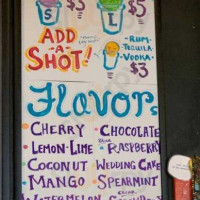 $ S $5 L
ADD
-A-
SHOT!
-RUM-
-TEQUILA-
-VODKA-
$3
Flavors
CHERRY CHOCOLATE
LEMON-LIME BLUE RASPBERRY
COCONUT WEDDING CAKE
MANGO SPEARMINT
WATERMELON